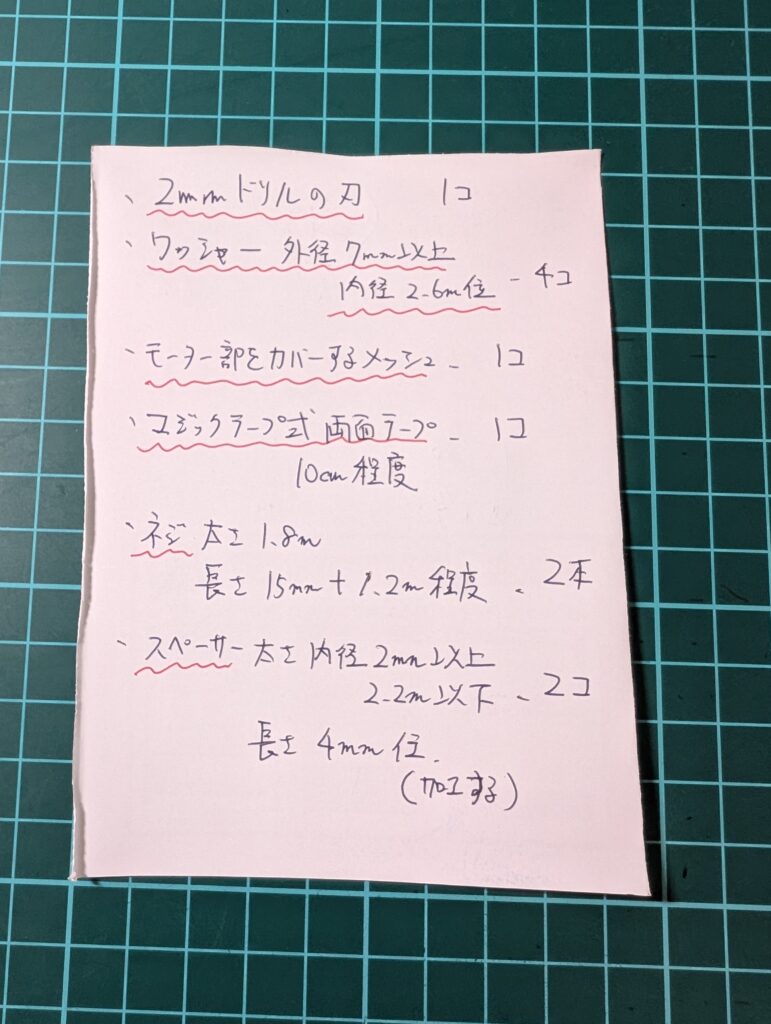 、2mmドリルの刃 1コ
、ワッシャー 外径7mm以上
内径2.6m位 - 4コ
、モーター部をカバーするメッシュ - 1コ
、マジックテープ式両面テープ - 1コ
10cm程度
、ネジ 太さ1.8m
長さ15mm+1.2m程度 、2本
、スペーサー 太さ 内径2mm以上
2.2m以下 、2コ
長さ4mm位.
(加工する)